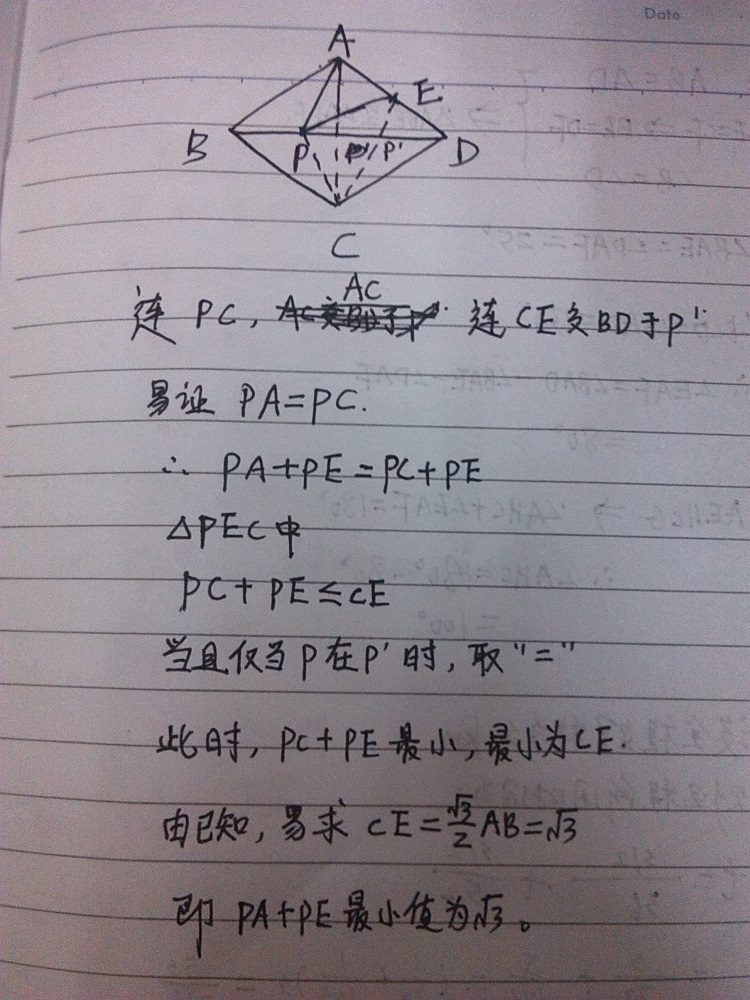 Date
A
E
B
P
P'
D
C
连 PC, AC 连CE交BD于P'
易证 PA=PC.
∴ PA+PE=PC+PE
△PEC中
PC+PE≤CE
当且仅当P在P'时,取"="
此时,PC+PE最小,最小为CE.
由已知,易求 CE=√3/2 AB=√3
即 PA+PE最小值为√3。